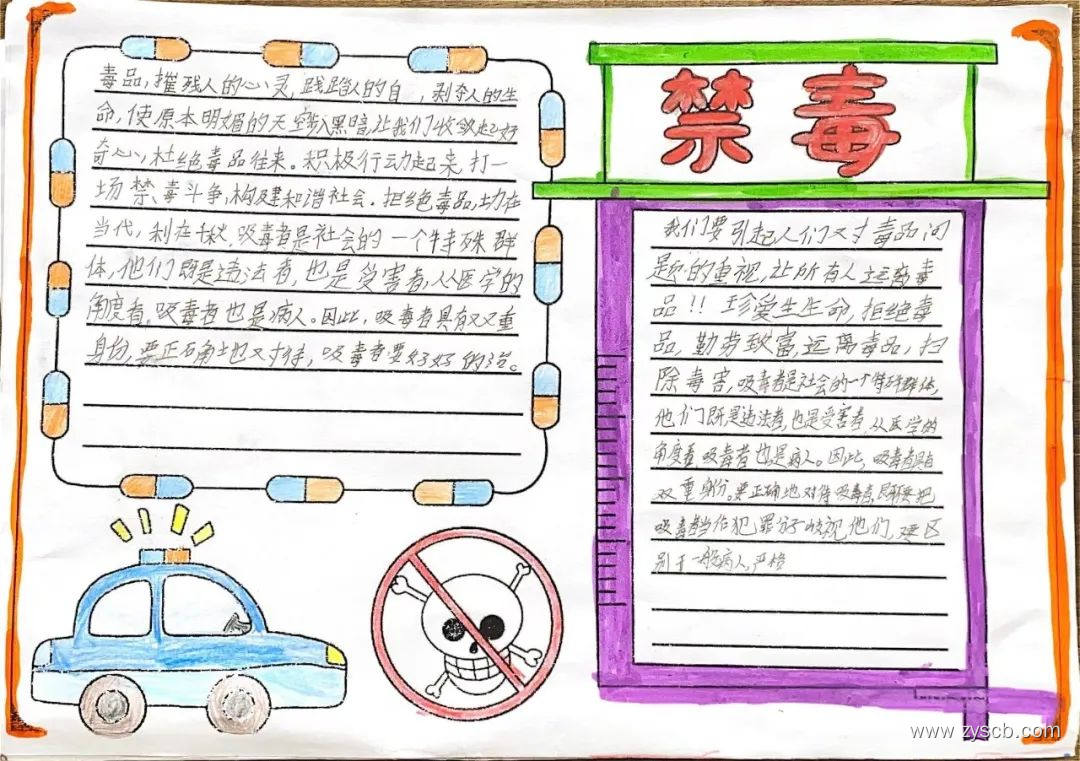 禁毒
毒品，摧残人的心灵，践踏人的自，剥夺人的生
命，使原本明媚的天空黑暗，让我们收敛起好
奇心，杜绝毒品往来。积极行动起来，打一
场禁毒斗争，构建和谐社会。拒绝毒品，功在
当代，利在千秋，吸毒者是社会的一个特殊群
体，他们既是违法者，也是受害者，从医学的
角度看，吸毒者也是病人。因此，吸毒者具有双重
身份，要正确地对待，吸毒者要好好的治。
我们要引起人们对毒品问
题的重视，让所有人远离毒
品！！珍爱生生命，拒绝毒
品，勤劳致富，远离毒品，扫
除毒害，吸毒者是社会的一个特殊群体，
他们既是违法者，也是受害者，从医学的
角度看吸毒者也是病人。因此，吸毒者具有
双重身份。要正确地对待吸毒者，既要把
吸毒者当作犯罪分子歧视他们，要区
别于一般病人，严格
www.zyscb.com